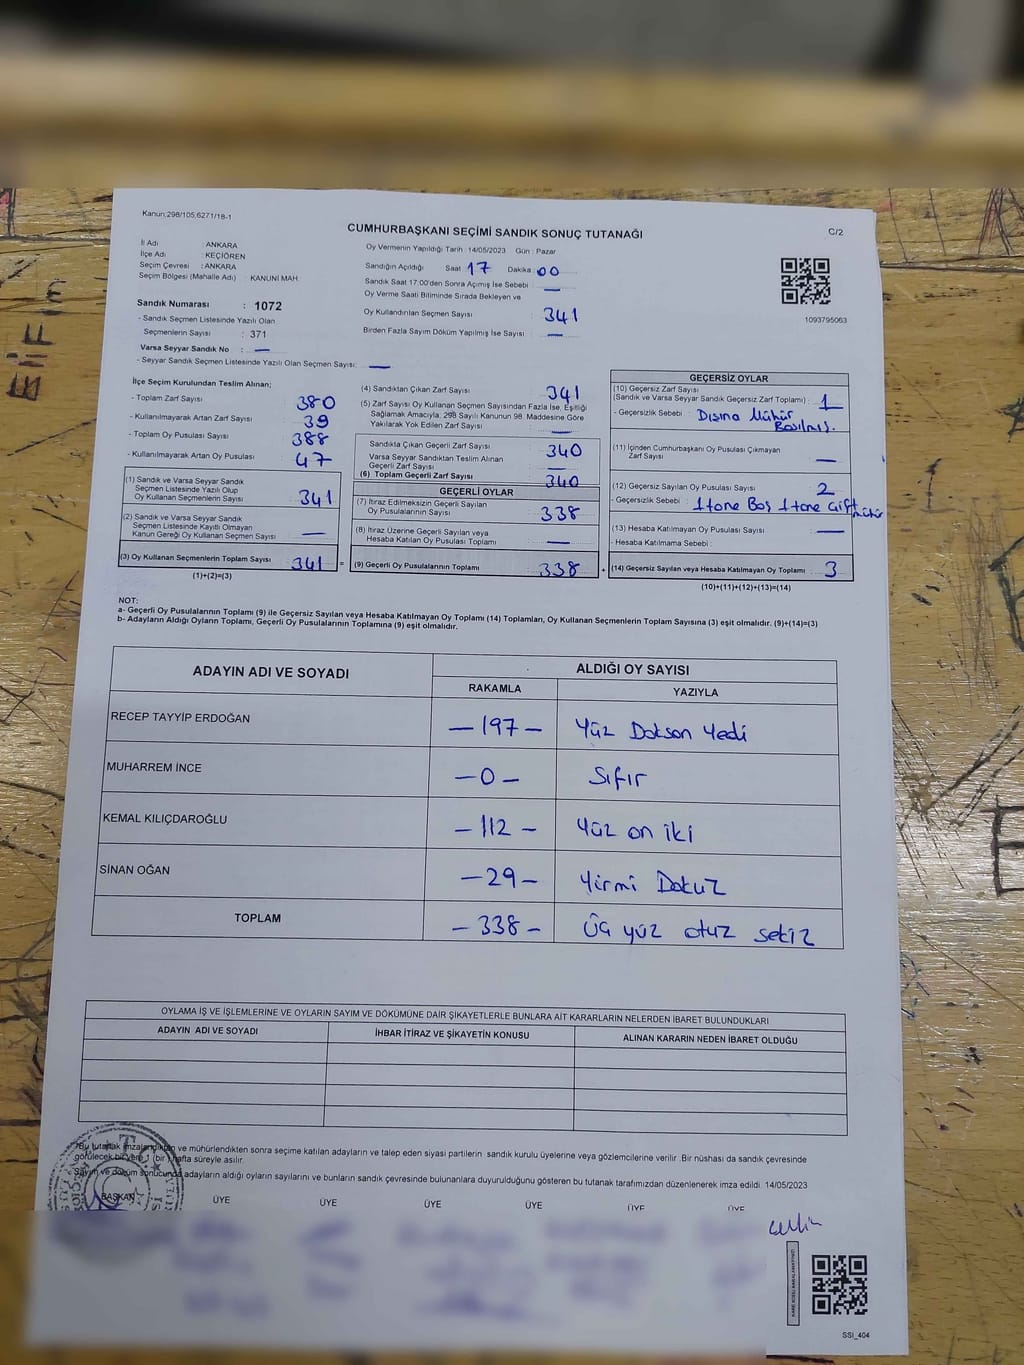 Kanun;298/105,6271/18-1
CUMHURBAŞKANI SEÇİMİ SANDIK SONUÇ TUTANAĞI
C/2
İl Adı : ANKARA
İlçe Adı : KEÇİÖREN
Seçim Çevresi : ANKARA
Seçim Bölgesi (Mahalle Adı) : KANUNİ MAH.
Sandık Numarası : 1072
- Sandık Seçmen Listesinde Yazılı Olan
Seçmenlerin Sayısı : 371
Varsa Seyyar Sandık No : —
- Seyyar Sandık Seçmen Listesinde Yazılı Olan Seçmen Sayısı: —
Oy Vermenin Yapıldığı Tarih : 14/05/2023 Gün : Pazar
Sandığın Açıldığı Saat 17 Dakika 00
Sandık Saat 17:00'den Sonra Açılmış İse Sebebi : —
Oy Verme Saati Bitiminde Sırada Bekleyen ve
Oy Kullandırılan Seçmen Sayısı : 341
Birden Fazla Sayım Döküm Yapılmış İse Sayısı : —
1093795063
İlçe Seçim Kurulundan Teslim Alınan;
- Toplam Zarf Sayısı : 380
- Kullanılmayarak Artan Zarf Sayısı : 39
- Toplam Oy Pusulası Sayısı : 388
- Kullanılmayarak Artan Oy Pusulası : 47
(1) Sandık ve Varsa Seyyar Sandık
Seçmen Listesinde Yazılı Olup
Oy Kullanan Seçmenlerin Sayısı : 341
(2) Sandık ve Varsa Seyyar Sandık
Seçmen Listesinde Kayıtlı Olmayan
Kanun Gereği Oy Kullanan Seçmen Sayısı : —
(3) Oy Kullanan Seçmenlerin Toplam Sayısı : 341 =
(1)+(2)=(3)
(4) Sandıktan Çıkan Zarf Sayısı : 341
(5) Zarf Sayısı Oy Kullanan Seçmen Sayısından Fazla İse, Eşitliği
Sağlamak Amacıyla, 298 Sayılı Kanunun 98. Maddesine Göre
Yakılarak Yok Edilen Zarf Sayısı : —
Sandıkla Çıkan Geçerli Zarf Sayısı : 340
Varsa Seyyar Sandıktan Teslim Alınan
Geçerli Zarf Sayısı : —
(6) Toplam Geçerli Zarf Sayısı : 340
GEÇERLİ OYLAR
(7) İtiraz Edilmeksizin Geçerli Sayılan
Oy Pusulalarının Sayısı : 338
(8) İtiraz Üzerine Geçerli Sayılan veya
Hesaba Katılan Oy Pusulası Toplamı : —
(9) Geçerli Oy Pusulalarının Toplamı : 338 +
GEÇERSİZ OYLAR
(10) Geçersiz Zarf Sayısı
(Sandık ve Varsa Seyyar Sandık Geçersiz Zarf Toplamı) : 1
- Geçersizlik Sebebi : Dışına Mühür
Basılmış.
(11) İçinden Cumhurbaşkanı Oy Pusulası Çıkmayan
Zarf Sayısı : —
(12) Geçersiz Sayılan Oy Pusulası Sayısı : 2
- Geçersizlik Sebebi : 1 tane Boş 1 tane Çift
(13) Hesaba Katılmayan Oy Pusulası Sayısı : —
- Hesaba Katılmama Sebebi :
(14) Geçersiz Sayılan veya Hesaba Katılmayan Oy Toplamı : 3
(10)+(11)+(12)+(13)=(14)
NOT:
a- Geçerli Oy Pusulalarının Toplamı (9) ile Geçersiz Sayılan veya Hesaba Katılmayan Oy Toplamı (14) Toplamları, Oy Kullanan Seçmenlerin Toplam Sayısına (3) eşit olmalıdır. (9)+(14)=(3)
b- Adayların Aldığı Oyların Toplamı, Geçerli Oy Pusulalarının Toplamına (9) eşit olmalıdır.
ADAYIN ADI VE SOYADI ALDIĞI OY SAYISI
RAKAMLA YAZIYLA
RECEP TAYYİP ERDOĞAN — 197 — Yüz Doksan Yedi
MUHARREM İNCE — 0 — Sıfır
KEMAL KILIÇDAROĞLU — 112 — Yüz on iki
SİNAN OĞAN — 29 — Yirmi Dokuz
TOPLAM — 338 — Üç yüz otuz sekiz
OYLAMA İŞ VE İŞLEMLERİNE VE OYLARIN SAYIM VE DÖKÜMÜNE DAİR ŞİKAYETLERLE BUNLARA AİT KARARLARIN NELERDEN İBARET BULUNDUKLARI
ADAYIN ADI VE SOYADI İHBAR İTİRAZ VE ŞİKAYETİN KONUSU ALINAN KARARIN NEDEN İBARET OLDUĞU
Bu tutanak imzalandıktan ve mühürlendikten sonra seçime katılan adayların ve talep eden siyasi partilerin sandık kurulu üyelerine veya gözlemcilerine verilir. Bir nüshası da sandık çevresinde
görülecek bir yere 1 (bir) hafta süreyle asılır.
Sayım ve döküm sonucunda adayların aldığı oyların sayılarını ve bunların sandık çevresinde bulunanlara duyurulduğunu gösteren bu tutanak tarafımızdan düzenlenerek imza edildi. 14/05/2023
BAŞKAN ÜYE ÜYE ÜYE ÜYE ÜYE ÜYE
SSI_404
ELİF